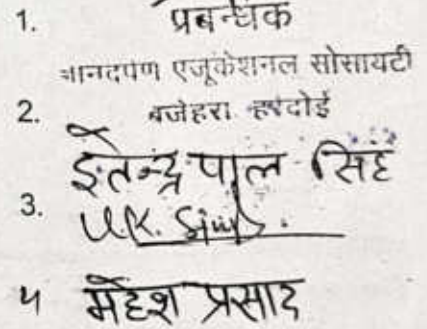 1. प्रबन्धक
ज्ञानदर्पण एजूकेशनल सोसायटी
2. बजेहरा हरदोई
इतेन्द्र पाल सिंह
3. U.K. Singh.
4 महेश प्रसाद